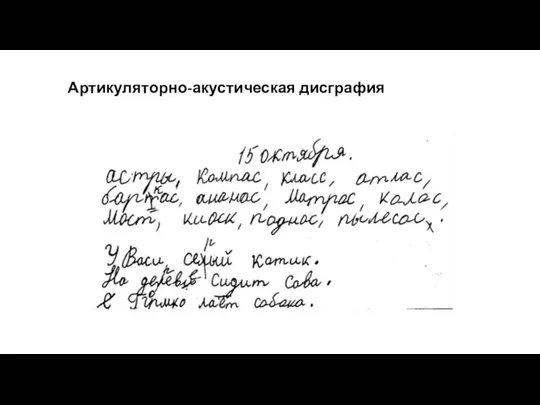 Артикуляторно-акустическая дисграфия
15 октября.
астры, компас, класс, атлас,
бартас, ананас, матрас, калас,
мост, киоск, поднос, пылесос.
У Васи, селый катик.
На дереве сидит сова.
лает собака.